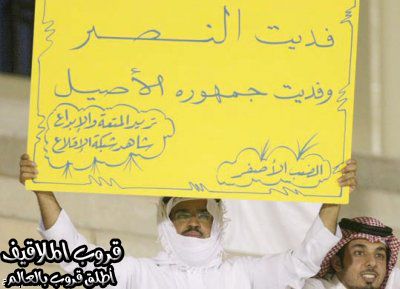 فديت النصر
وفديت جمهوره الأصيل
تريد المتعة والإبداع
شاهد شبكة الإقلاع
الضب الأصفر
قروب الملاقيف
أطلق قروب بالعالم